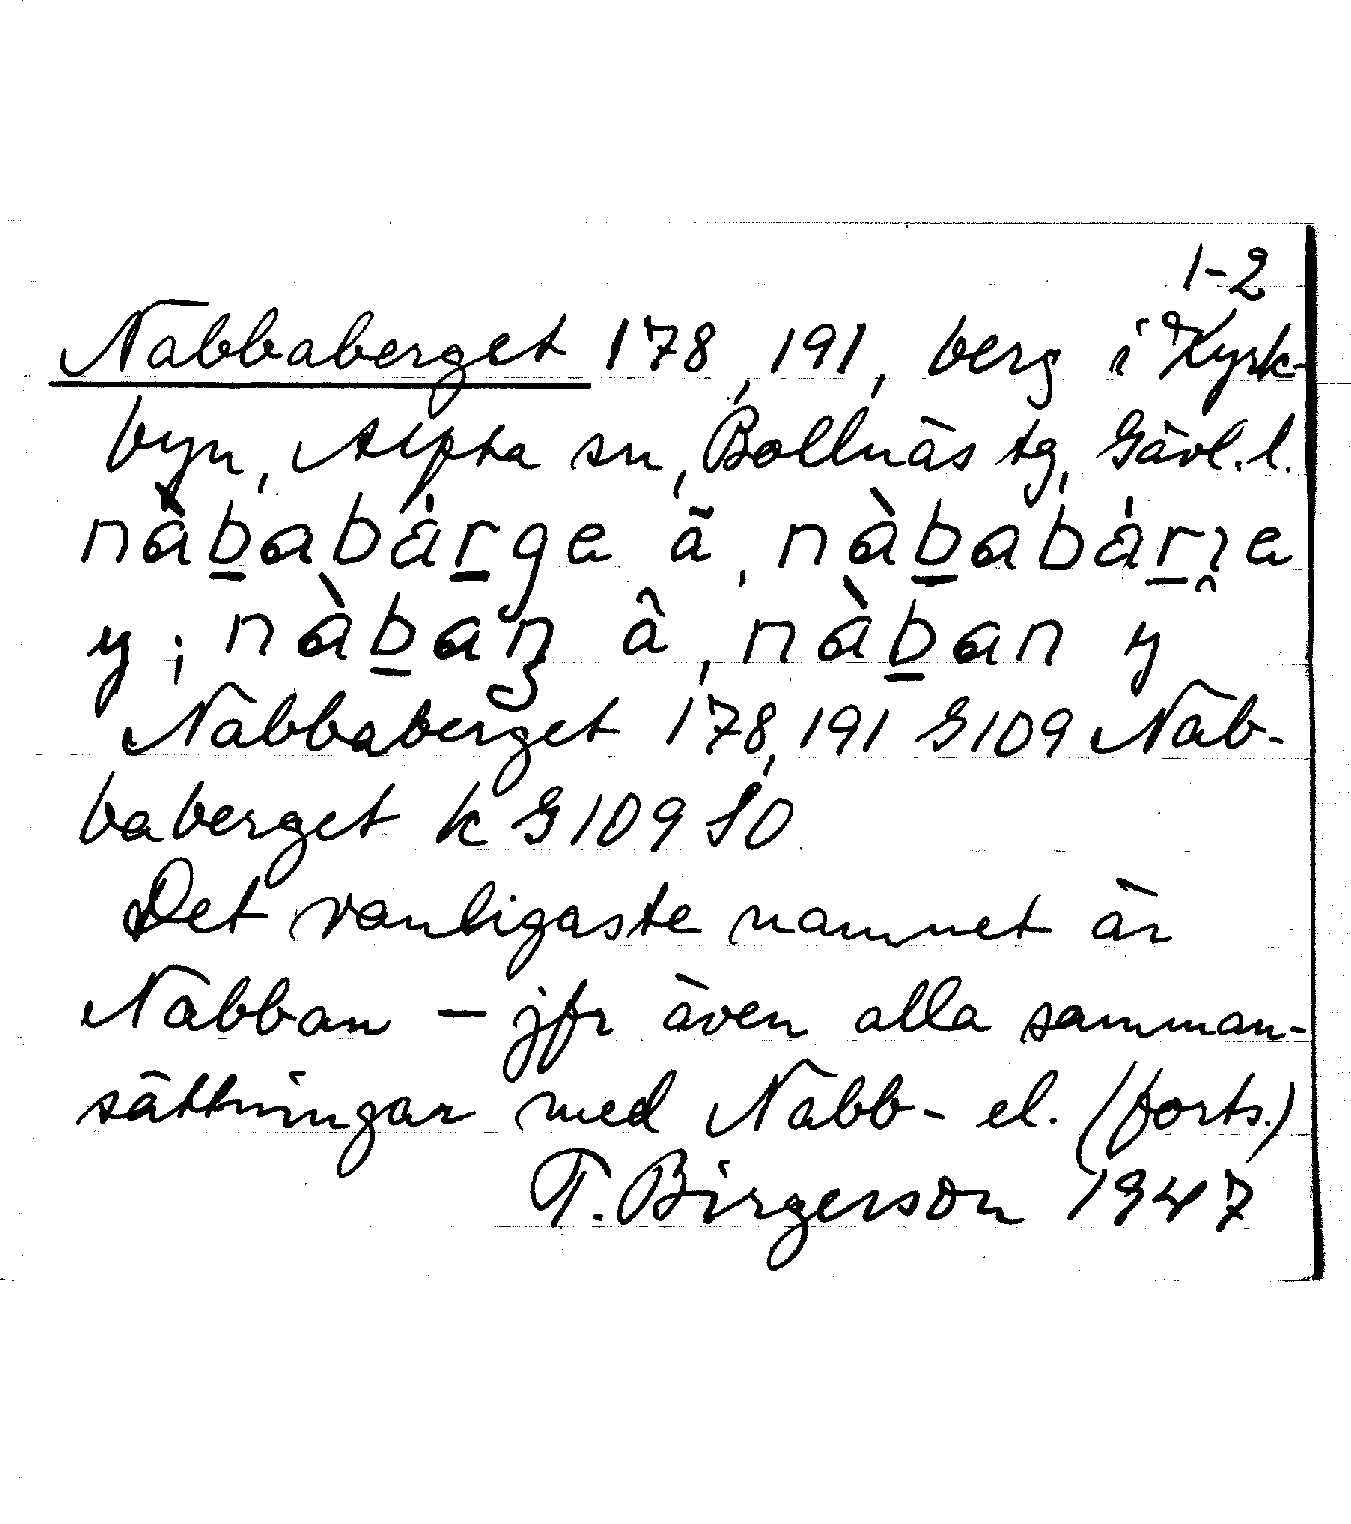 1-2
Nabbaberget 178, 191, berg i Kyrk-
byn, Alfta sn, Bollnäs tg, Gävl. l.
nàb̲abár̲ge ã, nàb̲abár̲ȷ̑e
y; nàb̲aņ â, nàb̲an y
Nabbaberget 178, 191 G109 Nab-
baberget k G109 SO
Det vanligaste namnet är
Nabban – jfr även alla samman-
sättningar med Nabb- el. (forts.)
T. Birgerson 1947